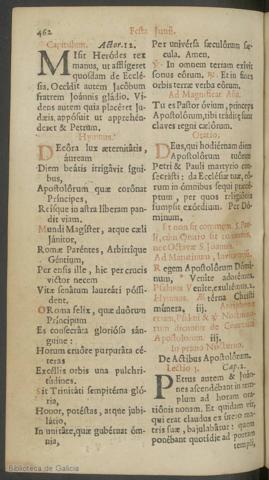 462
Festa Junii.
Capitulum. Actor. 12.
MIsit Heródes rex
manus, ut afflígeret
quosdam de Ecclé-
sia, Occídit autem Jacóbum
fratrem Joánnis gládio. Vi-
dens autem quia placéret Ju-
dæis, appósuit ut apprehén-
deret & Petrum.
Hymnus.
DEcóra lux æternitátis,
áuream
Diem beátis irrigávit ígni-
bus,
Apostolórum quæ corónat
Príncipes,
Reísque in astra líberam pan-
dit viam.
Mundi Magíster, atque cæli
Jánitor,
Romæ Paréntes, Arbitríque
Géntium,
Per ensis ille, hic per crucis
victor necem
Vitæ senátum laureáti póssi-
dent.
O Roma felix, quæ duórum
Príncipum
Es consecráta glorióso sán-
guine:
Horum cruóre purpuráta cé-
teras
Excéllis orbis una pulchri-
túdines.
Sit Trinitáti sempitérna gló-
ria,
Honor, potéstas, atque jubi-
látio,
In unitáte, quæ gubérnat óm-
nia,
Per univérsa sæculórum sæ-
cula. Amen.
℣. In omnem terram exívit
sonus eórum. ℟. Et in fines
orbis terræ verba eórum.
Ad Magnificat Aña.
Tu es Pastor óvium, princeps
Apostolórum, tibi tráditæ sunt
claves regni cælórum.
Oratio.
DEus, qui hodiérnam diem
Apostolórum tuórum
Petri & Pauli martyrio con-
secrásti: da Ecclésiæ tuæ, eó-
rum in ómnibus sequi præcé-
ptum, per quos religiónis
sumpsit exórdium. Per Dó-
minum,
Ad Matutinum,
REgem Apostolórum Dómi-
num, * Veníte adorémus.
Psalmus Veníte, exultémus.
Hymnus. Ætérna Christi
múnera, iij.
Apostolorum. iij.
In primo Nocturno.
De Actibus Apostolórum.
Lectio j. Cap. 3.
PEtrus autem & Joán-
nes ascendébant in tem-
plum ad horam ora-
tiónis nonam. Et quidam vir,
qui erat claudus ex útero ma-
tris suæ, bajulabátur: quem
ponébant quotídie ad portam
templi,
Biblioteca de Galicia